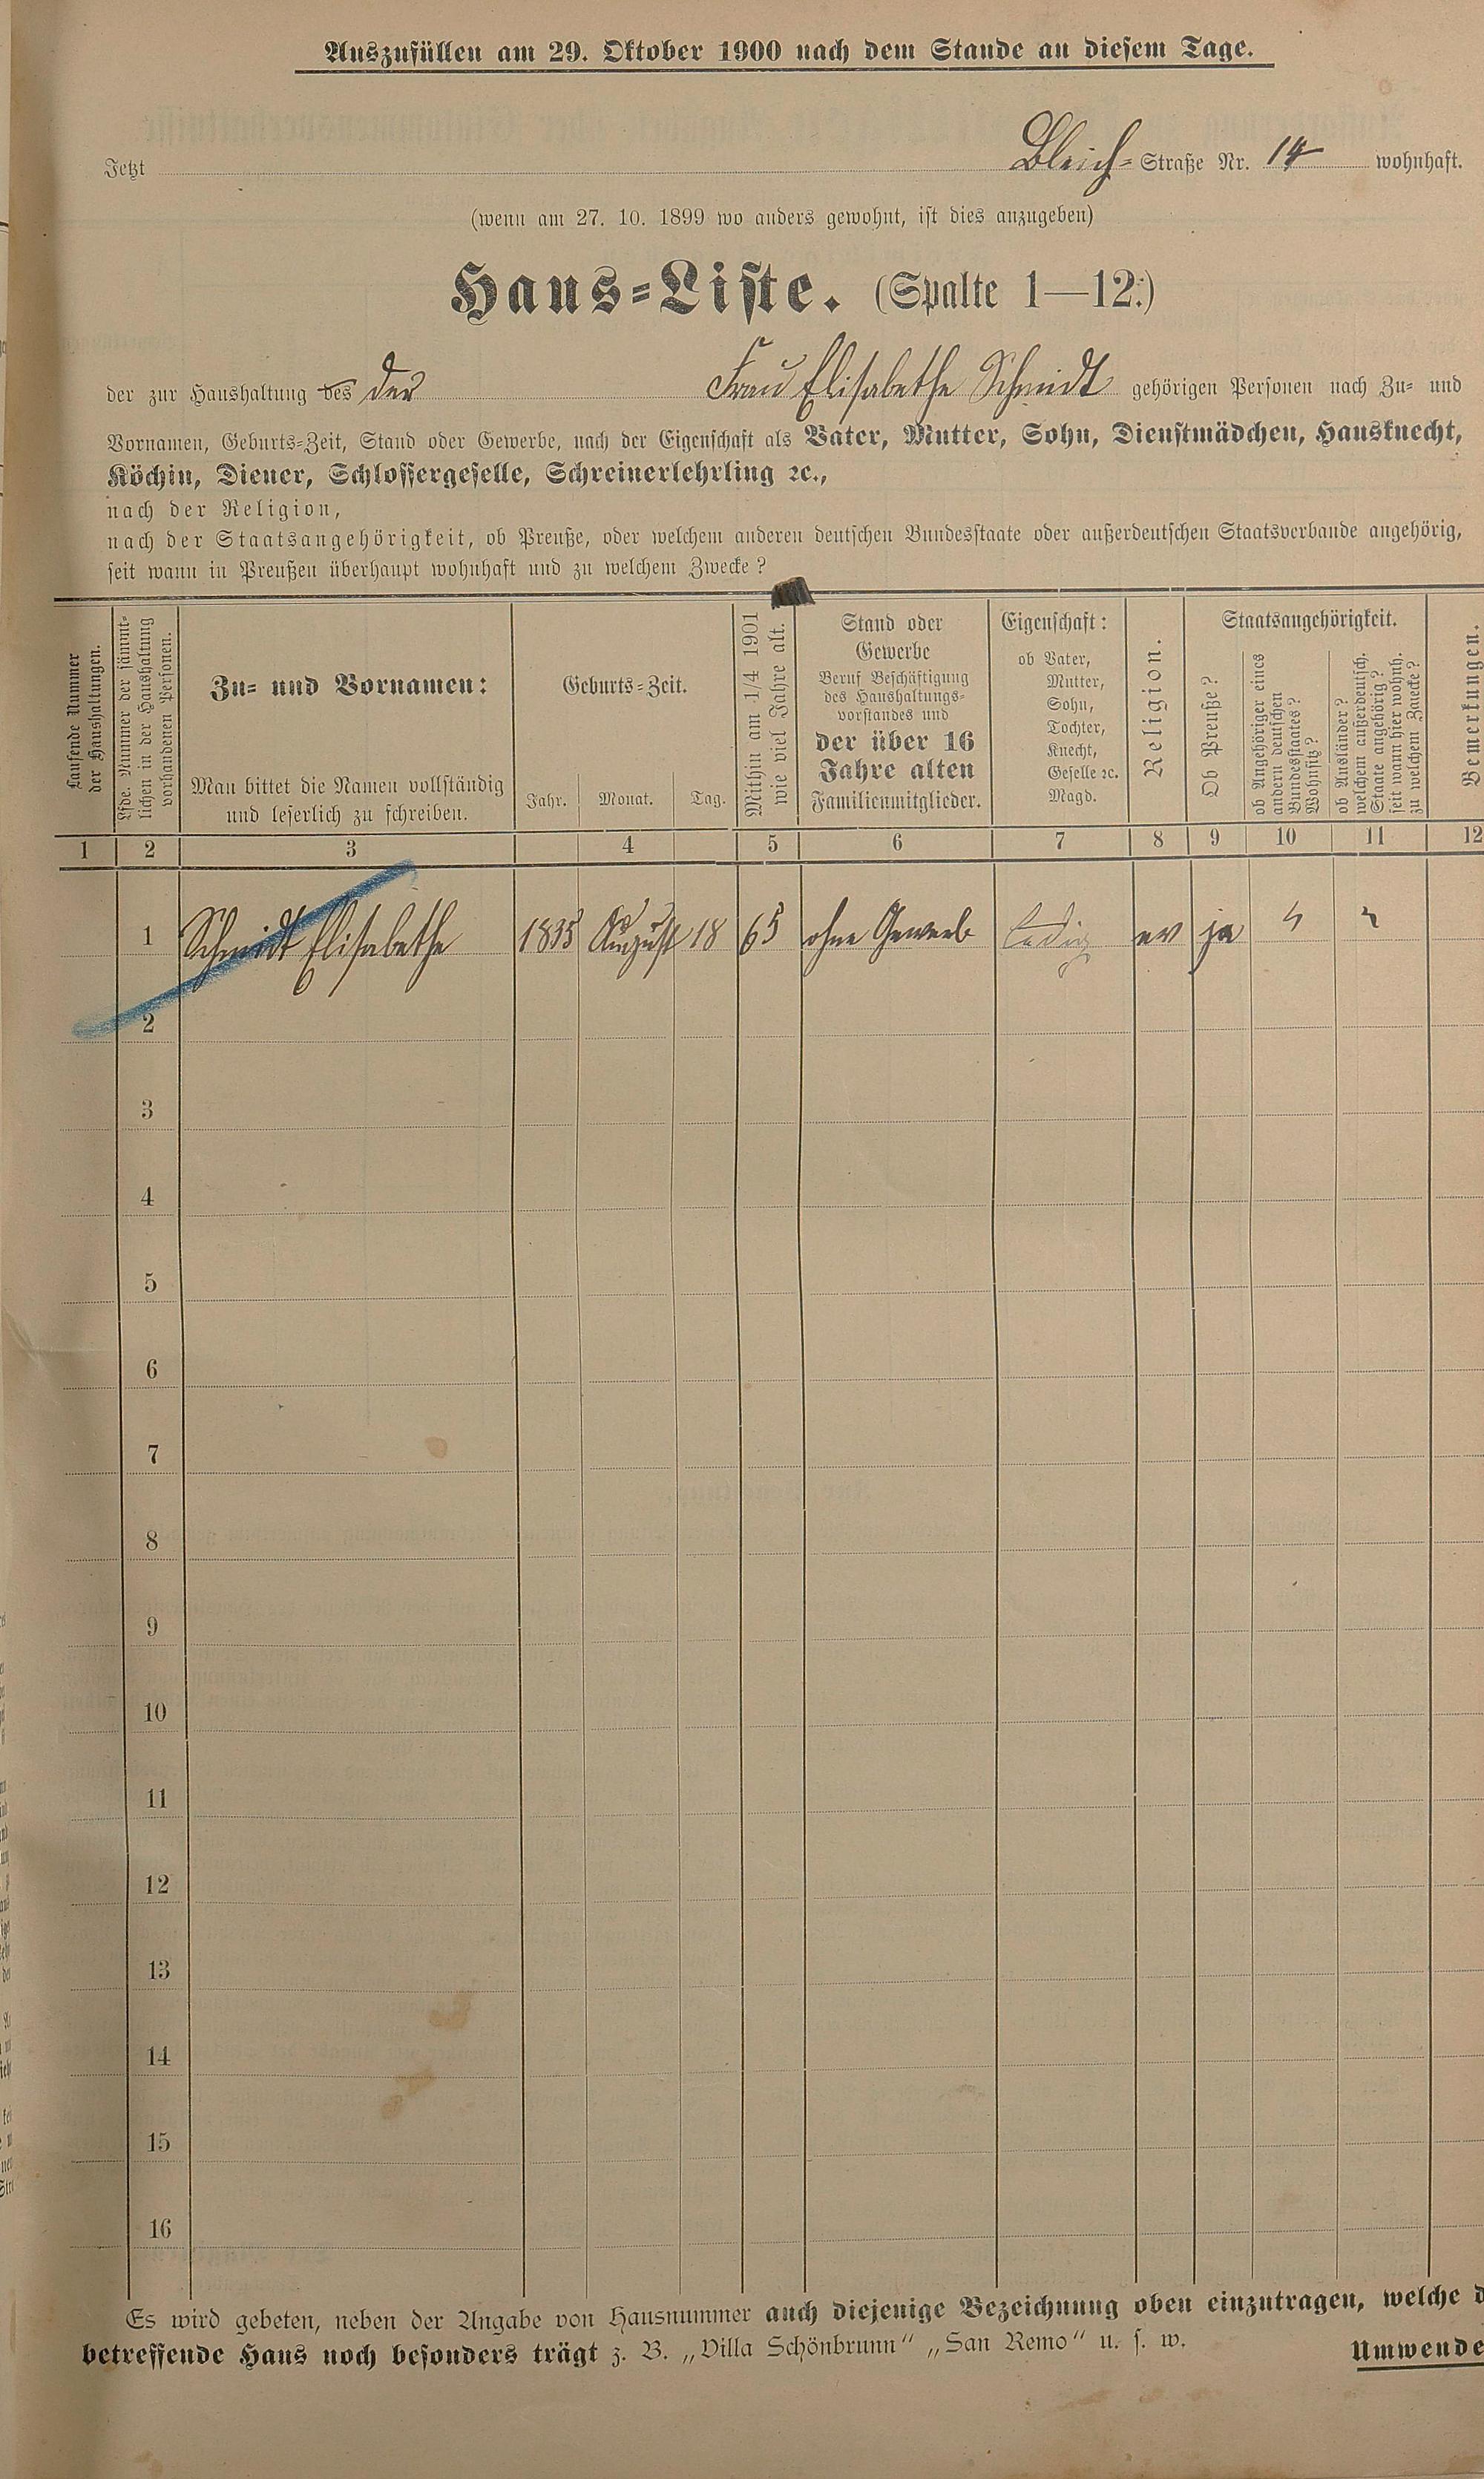 Auszufüllen am 29. Oktober 1900 nach dem Stande an diesem Tage.
Jetzt Bleich- Straße Nr. 14 wohnhaft.
(wenn am 27. 10. 1899 wo anders gewohnt, ist dies anzugeben)
Haus-Liste. (Spalte 1—12.)
der zur Haushaltung des der Frau Elisabethe Schmidt gehörigen Personen nach Zu- und
Vornamen, Geburts-Zeit, Stand oder Gewerbe, nach der Eigenschaft als Vater, Mutter, Sohn, Dienstmädchen, Hausknecht,
Köchin, Diener, Schlossergeselle, Schreinerlehrling ꝛc.,
nach der Religion,
nach der Staatsangehörigkeit, ob Preuße, oder welchem anderen deutschen Bundesstaate oder außerdeutschen Staatsverbande angehörig,
seit wann in Preußen überhaupt wohnhaft und zu welchem Zwecke?
Laufende Nummer
der Haushaltungen.
Lfde. Nummer der sämmt-
lichen in der Haushaltung
vorhandenen Personen.
Zu- und Vornamen:
Man bittet die Namen vollständig
und leserlich zu schreiben.
Geburts-Zeit.
Jahr. Monat. Tag.
Mithin am 1/4 1901
wie viel Jahre alt.
Stand oder
Gewerbe
Beruf Beschäftigung
des Haushaltungs-
vorstandes und
der über 16
Jahre alten
Familienmitglieder.
Eigenschaft:
ob Vater,
Mutter,
Sohn,
Tochter,
Knecht,
Geselle ꝛc.
Magd.
Religion.
Staatsangehörigkeit.
Ob Preuße?
ob Angehöriger eines
andern deutschen
Bundesstaates?
Wohnsitz?
ob Ausländer?
welchem außerdeutsch.
Staate angehörig?
seit wann hier wohnh.
zu welchem Zwecke?
Bemerkungen.
1 2 3 4 5 6 7 8 9 10 11 12
1 Schmidt Elisabethe 1835 August 18 65 ohne Gewerb ledig ev ja
2
3
4
5
6
7
8
9
10
11
12
13
14
15
16
Es wird gebeten, neben der Angabe von Hausnummer auch diejenige Bezeichnung oben einzutragen, welche d
betreffende Haus noch besonders trägt z. B. „Villa Schönbrunn“ „San Remo“ u. s. w.
Umwende